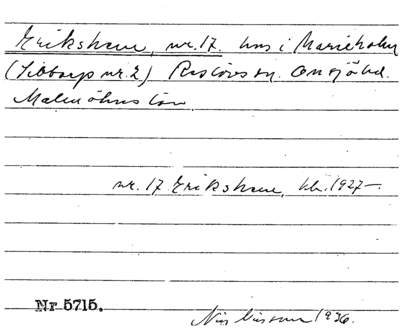 Erikshem, nr. 17. hus i Marieholm
(Sibbarp nr. 2) Reslövs sn. Onsjö hd.
Malmöhus län
nr. 17 Erikshem, 1927–
Nr 5715.
Nils Nilsson 1936.